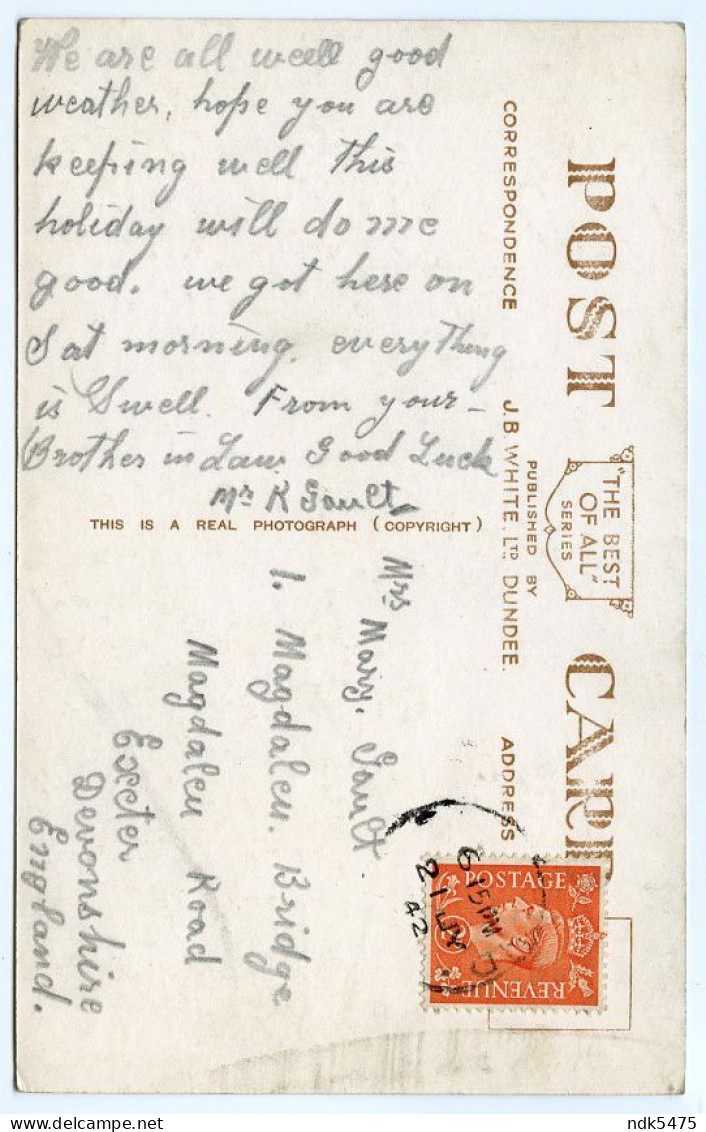 We are all well good
weather, hope you are
keeping well this
holiday will do me
good. we got here on
Sat morning. everything
is Swell. From your
Brother in Law Good Luck
Mr K Gault
THIS IS A REAL PHOTOGRAPH (COPYRIGHT)
POST CARD
"THE BEST
OF ALL"
SERIES
CORRESPONDENCE
PUBLISHED BY
J. B WHITE. LTD DUNDEE.
ADDRESS
Mrs Mary. Gault
1. Magdalen. Bridge
Magdalen Road
Exeter
Devonshire
England.
POSTAGE
REVENUE
6 15 PM
21 JY
42
ndk5475